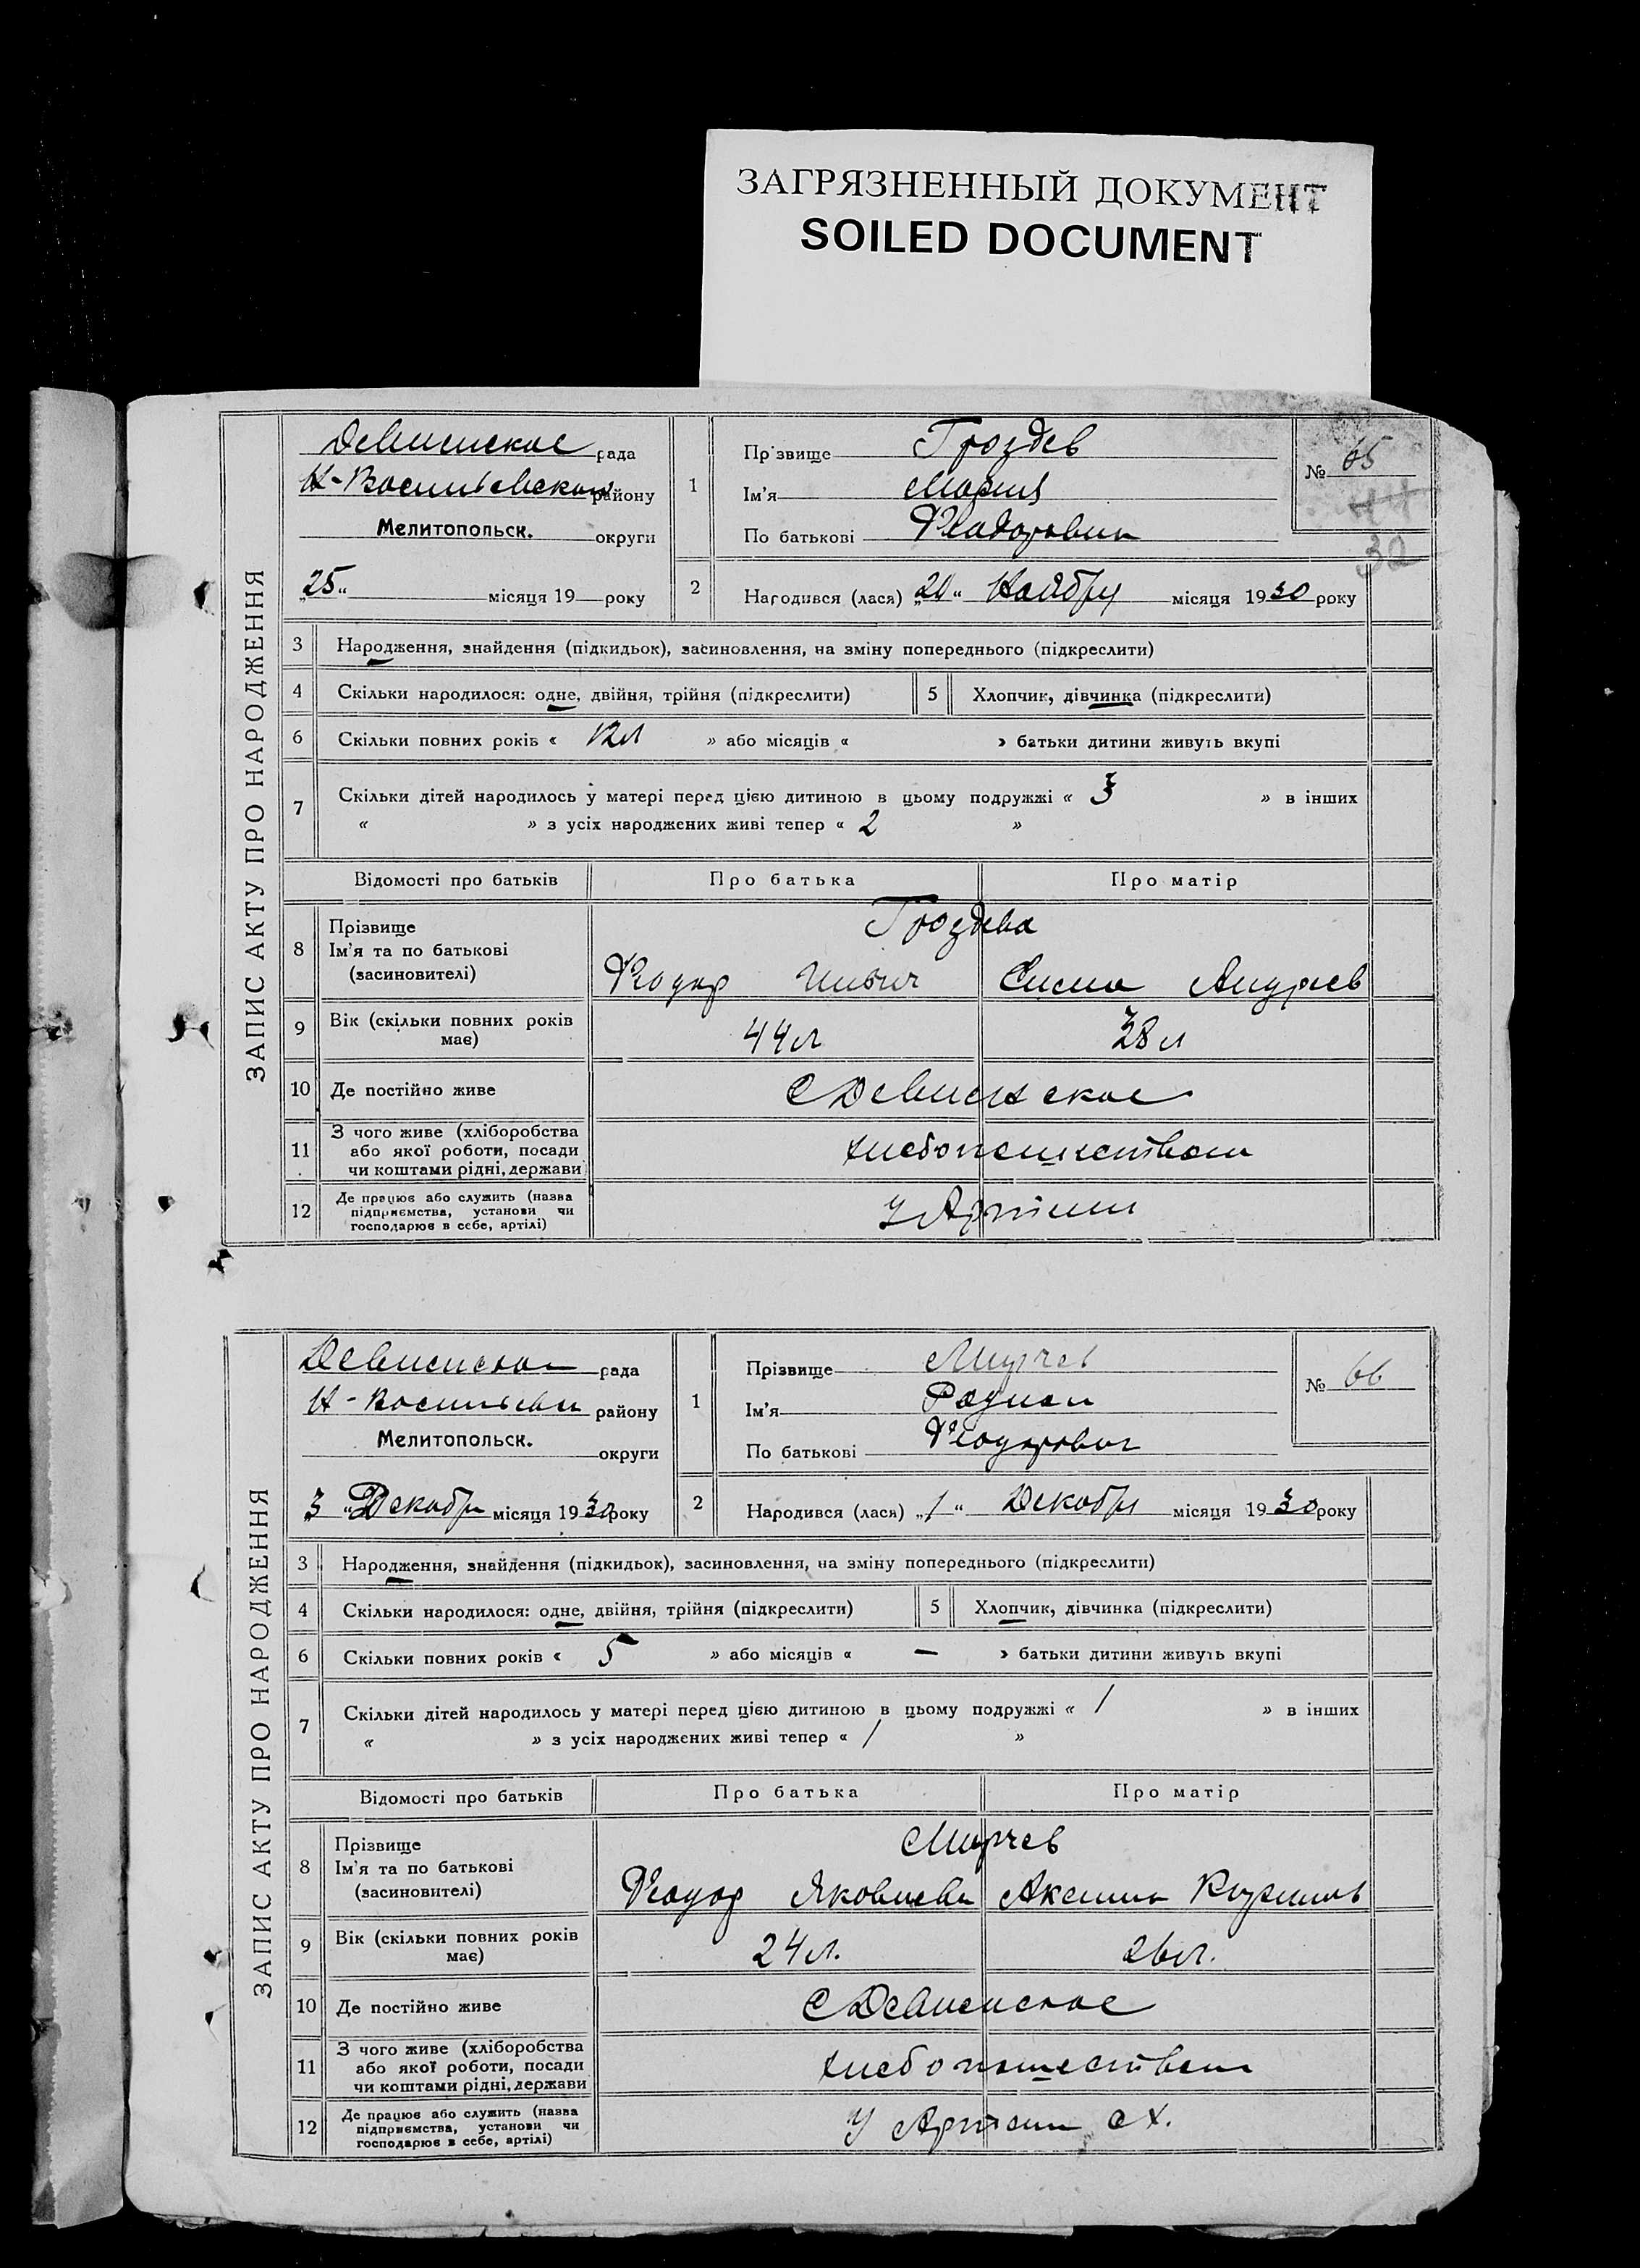 ЗАГРЯЗНЕННЫЙ ДОКУМЕНТ
SOILED DOCUMENT
ЗАПИС АКТУ ПРО НАРОДЖЕННЯ
рада
району
Мелитопольск. округи
„25“ місяця 19 року
1
Прізвище Гроздев
Ім'я Мария
По батькові
№ 65
44
32
2 Народився (лася) „20“ Ноября місяця 1930 року
3 Народження, знайдення (підкидьок), засиновлення, на зміну попереднього (підкреслити)
4 Скільки народилося: одне, двійня, трійня (підкреслити) 5 Хлопчик, дівчинка (підкреслити)
6 Скільки повних років « 12л » або місяців « » батьки дитини живуть вкупі
7 Скільки дітей народилось у матері перед цією дитиною в цьому подружжі « 3 » в інших
« » з усіх народжених живі тепер « 2 »
Відомості про батьків Про батька Про матір
8 Прізвище Гроздева
Ім'я та по батькові
(засиновителі) Феодор Ильич Андреев
9 Вік (скільки повних років має) 44л 38л
10 Де постійно живе С Девненское
11 З чого живе (хліборобства
або якої роботи, посади
чи коштами рідні, держави) хлебопашеством
12 Де працює або служить (назва
підприємства, установи чи
господарює в себе, артілі) У Артели
ЗАПИС АКТУ ПРО НАРОДЖЕННЯ
рада
району
Мелитопольск. округи
3 „Декабр місяця 1930 року
1
Прізвище Мирчев
Ім'я Родион
По батькові Феодорович
№ 66
2 Народився (лася) „1“ Декабря місяця 1930 року
3 Народження, знайдення (підкидьок), засиновлення, на зміну попереднього (підкреслити)
4 Скільки народилося: одне, двійня, трійня (підкреслити) 5 Хлопчик, дівчинка (підкреслити)
6 Скільки повних років « 5 » або місяців « — » батьки дитини живуть вкупі
7 Скільки дітей народилось у матері перед цією дитиною в цьому подружжі « 1 » в інших
« » з усіх народжених живі тепер « 1 »
Відомості про батьків Про батька Про матір
8 Прізвище Мирчев
Ім'я та по батькові
(засиновителі) Феодор
9 Вік (скільки повних років має) 24л. 26л.
10 Де постійно живе С Девненское
11 З чого живе (хліборобства
або якої роботи, посади
чи коштами рідні, держави хлебопашеством
12 Де працює або служить (назва
підприємства, установи чи
господарює в себе, артілі) У Артели с х.